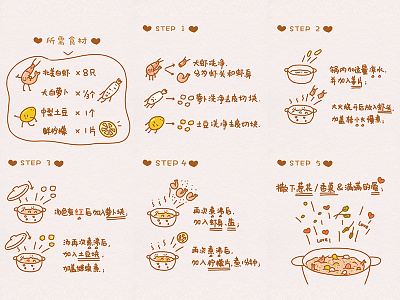 所需食材
北美白虾 × 8只
大白萝卜 × ½个
中型土豆 × 1个
鲜柠檬 × 1片
STEP 1
大虾洗净,
分为虾头和虾身;
萝卜洗净去皮切块;
土豆洗净去皮切块;
STEP 2
锅内加适量凉水,
并加入姜片;
大火烧开后放入虾头,
加盖转小火慢煮;
STEP 3
汤色有红后加入萝卜块;
汤再次煮沸后,
加入土豆块,
加盖继续煮;
STEP 4
再次煮沸后,
加入虾身、盐;
再次煮沸后,
加入柠檬片,煮1分钟;
STEP 5
撒下葱花/香菜&满满的爱;
Love!
Love!